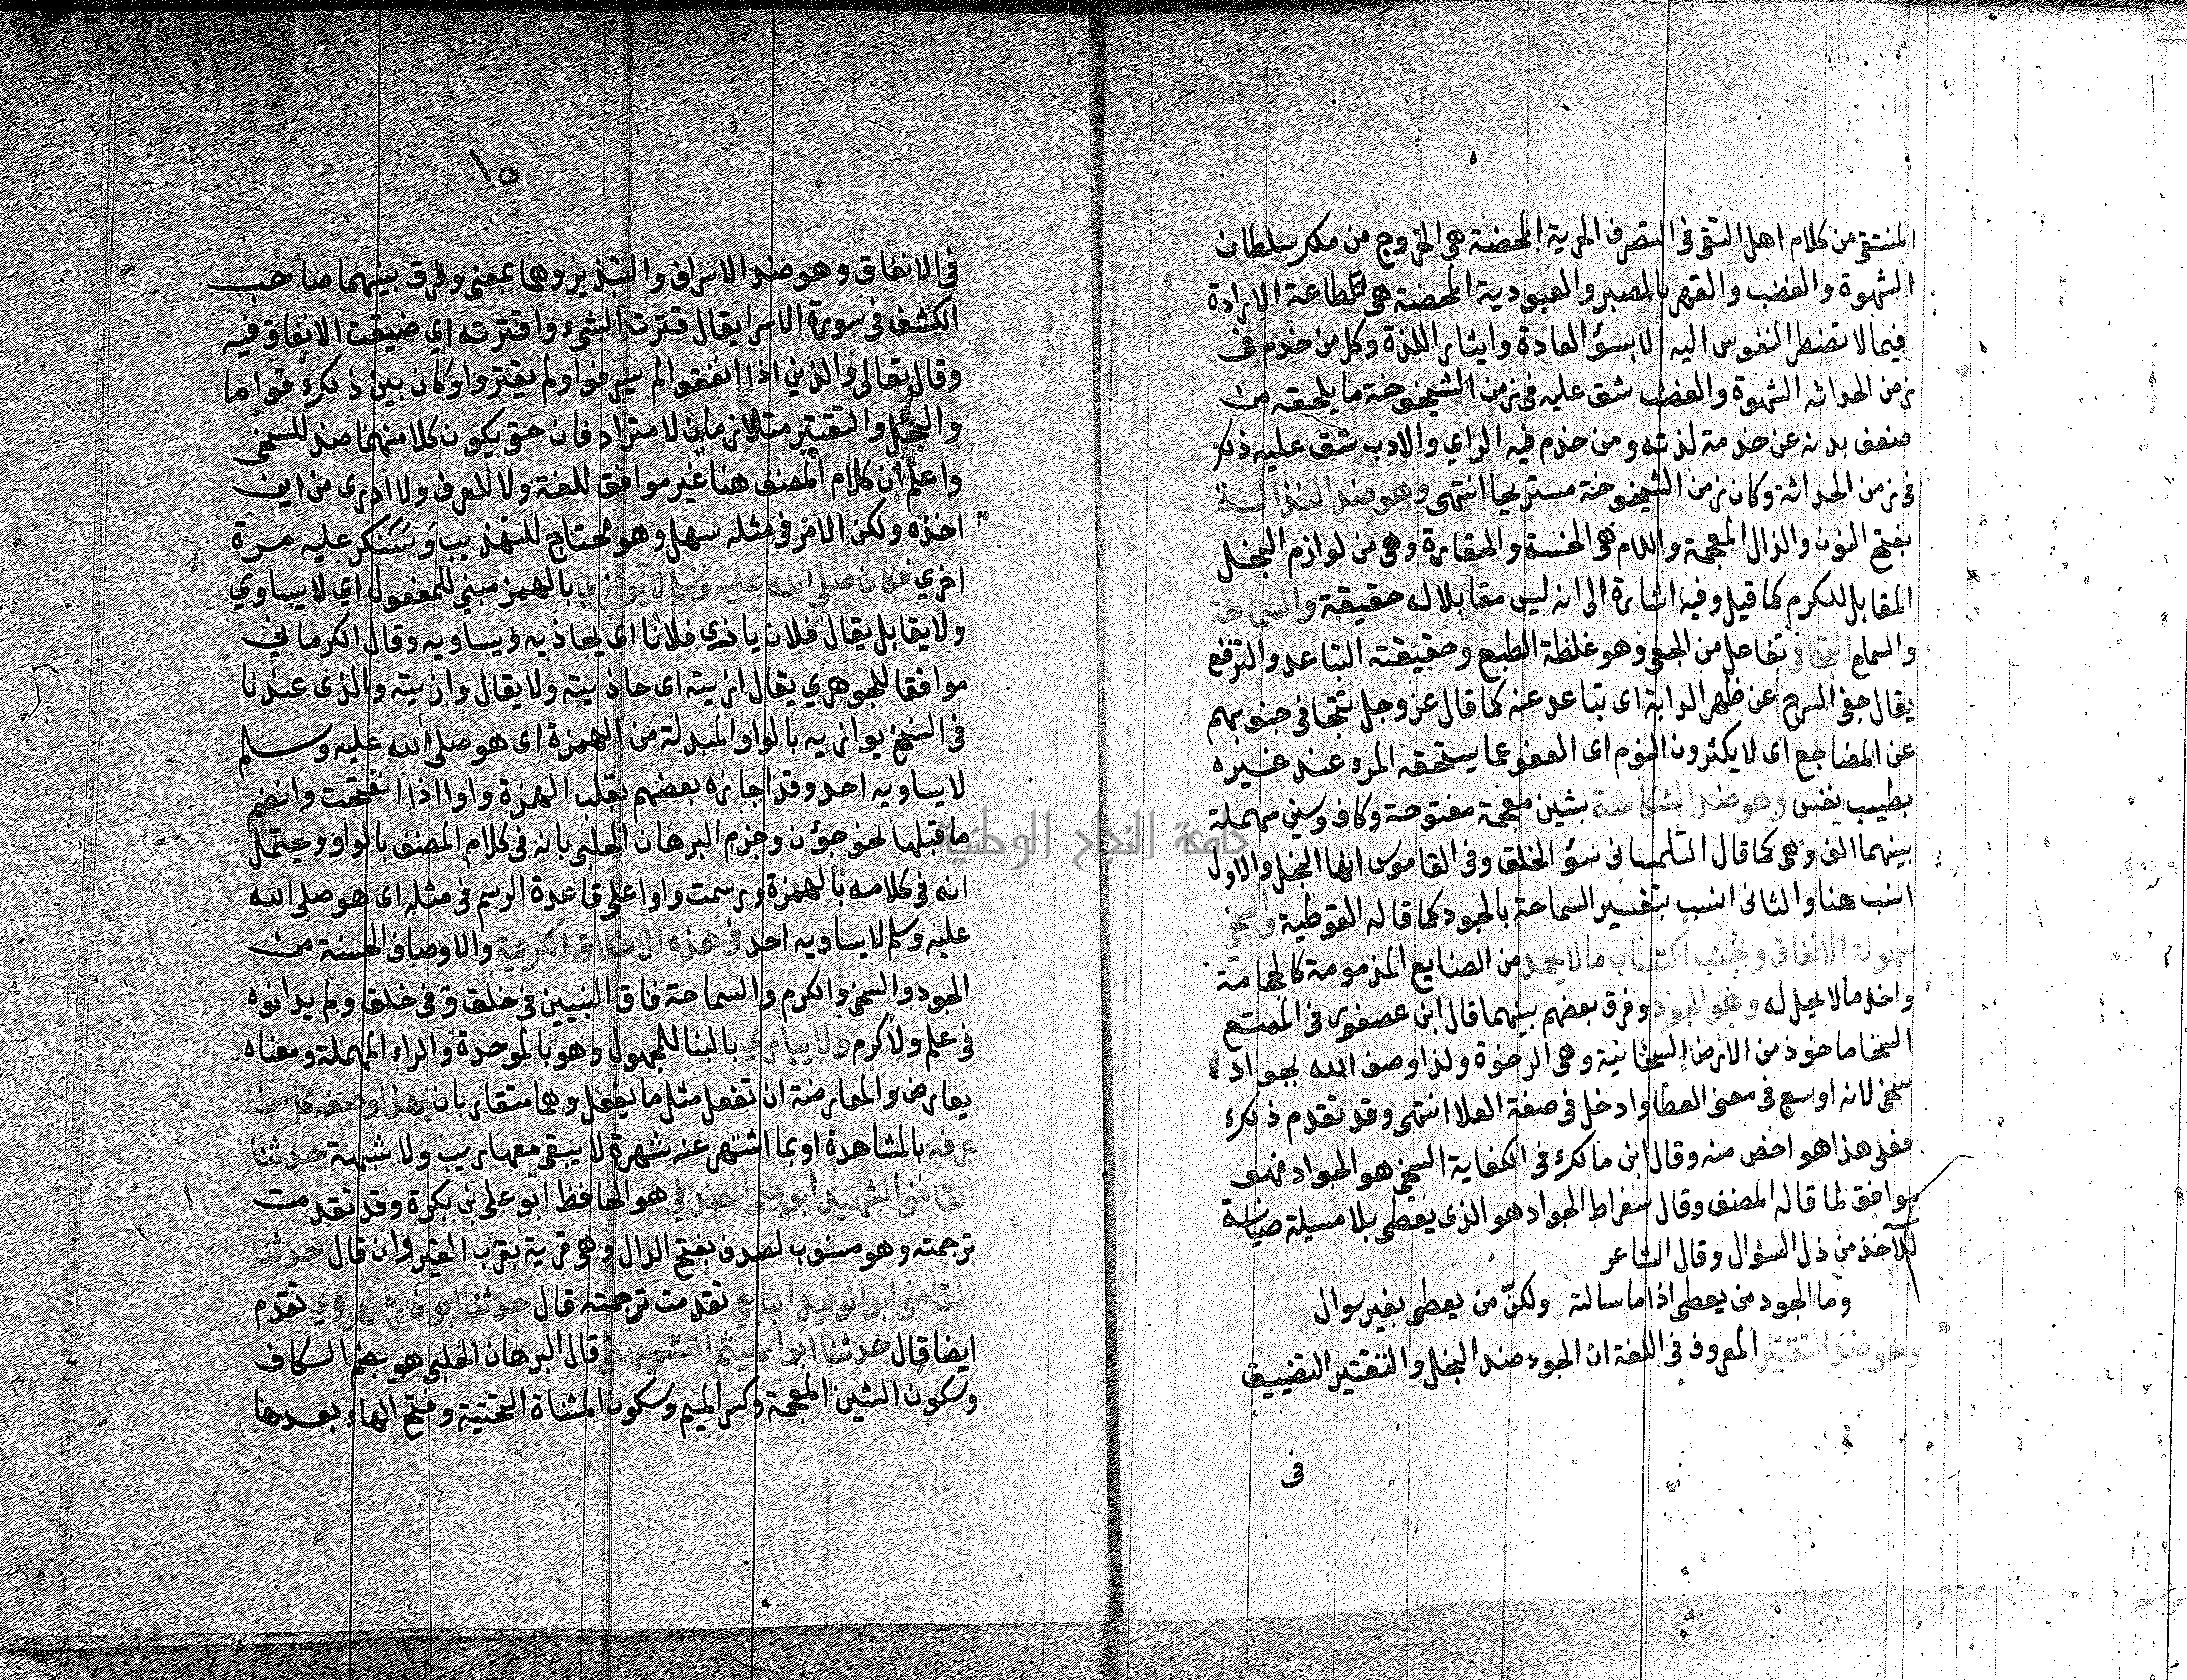 المنتقى من كلام اهل التقى في التصرف الحرية المحضة هي الخروج من ملكر سلطان
الشهوة والغضب والقهر بالصبر والعبودية المحضة هي الطاعة الارادة
فيما لا تضطر النفوس اليه الا بسؤ العادة وايثار اللذة وكل من خدم في
زمن الحداثه الشهوة والغضب شق عليه في زمن الشيخوخة ما يلحقه من
ضعف بدنه عن خدمة لذته ومن خدم فيه الراي والادب شق عليه ذلك
في زمن الحداثة وكان زمن الشيخوخة مستريحا انتهى وهو ضد النذالة
بفتح النون والذال المعجمة واللام هي الخسة والحقارة وهي من لوازم البخل
المقابل للكرم كما قيل وفيه اشارة الى انه ليس مقابلا له حقيقة والسماحة
والسماح التجافي تفاعل من الجفى وهو غلظة الطبع وحقيقته التباعد والترفع
يقال جفى السرج عن ظهر الدابة اى تباعد عنه كما قال عز وجل تتجافى جنوبهم
عن المضاجع اى لا يكثرون النوم اى العفو عما يستحقه المرء عند غيره
بطيب نفس وهو ضد الشكاسة بشين معجمة مفتوحة وكاف وسين مهملة
بينهما الف وهى كما قال التلمسانى سؤ الخلق وفى القاموس انها البخل والاول
انسب هنا والثانى انسب بتفسير السماحة بالجود كما قاله القوطية والسخي
سهولة الانفاق وتجنب اكتساب ما لا يحمد من الصنايع المذمومة كالحجامة
واخذ ما لا يحل له وهو الجود وفرق بعضهم بينهما قال ابن عصفور في الممتع
السخا ماخوذ من الارض السخانية وهى الرخوة ولذا وصف الله بجواد ا
سخى لانه اوسع فى معنى العطا وادخل فى صفة العلا انتهى وقد تقدم ذكره
فعلى هذا هو اخص منه وقال ابن مالك فى الكفاية السخى هو الجواد فهو
موافق لما قاله المصنف وقال سقراط الجواد هو الذى يعطى بلا مسيلة صيانة
للآخذ من ذل السؤال وقال الشاعر
وما الجود من يعطى اذا ما سالته ولكنّ من يعطى بغير سوال
وهو ضد التقتير المعروف فى اللغة ان الجود ضد البخل والتقتير التضييق
فى
١٥
فى الانفاق وهو ضد الاسراف والتبذير وهما بمعنى وفرق بينهما صاحب
الكشف فى سورة الاسرا يقال قترت الشىء واقترته اي ضيقت الانفاق فيه
وقال تعالى والذين اذا انفقوا لم يسرفوا ولم يقتروا وكان بين ذلك قواما
والبخل والتقتير متلازمان لا مترادفان حتى يكون كلا منهما ضد للسخى
واعلم ان كلام المصنف هنا غير موافق للغة ولا للعرف ولا ادرى من اين
اخذه ولكن الامر فى مثله سهل وهو محتاج للتهذيب وَسَننكر عليه مرة
اخري فكان صلى الله عليه وسلم لا يوازي بالهمز مبني للمفعول اي لا يساوي
ولا يقابل يقال فلان ياذى فلانا اى يحاذيه ويساويه وقال الكرماني
موافقا للجوهري يقال ازيته اى حاذيته ولا يقال وازيته والذى عندنا
فى النسخ يوازيه بالواو المبدلة من الهمزة اى هو صلى الله عليه وسلم
لا يساويه احد وقد اجازه بعضهم بقلب الهمزة واوا اذا انفتحت وانضم
ما قبلها نحو جؤن وجزم البرهان الحلبى بانه فى كلام المصنف بالواو ويحتمل
انه فى كلامه بالهمزة ورسمت واوا على قاعدة الرسم فى مثله اى هو صلى الله
عليه وسلم لا يساويه احد فى هذه الاخلاق الكريمة والاوصاف الحسنة من
الجود والسخى والكرم والسماحة فاق النبيين فى خلق وفى خلق ولم يدانوه
فى علم ولا كرم ولا يبارى بالبنا للمجهول وهو بالموحدة والراء المهملة ومعناه
يعارض والمعارضة ان تفعل مثل ما يفعل وهما متقاربان بهذا وصفه كل من
عرفه بالمشاهدة او بما اشتهر عنه شهرة لا يبقى معها ريب ولا شبهة حدثنا
القاضى الشهيد ابو على الصدفي هو الحافظ ابو على بن بكرة وقد تقدمت
ترجمته وهو منسوب لصدف بفتح الدال وهى قرية بقرب القيروان قال حدثنا
القاضى ابو الوليد الباجي تقدمت ترجمته قال حدثنا ابو ذر الهروي تقدم
ايضا قال حدثنا ابو الهيثم الكشميهني قال البرهان الحلبى هو بضم الكاف
وسكون الشين المعجمة وكسر الميم وسكون المثناة التحتية وفتح الهاء بعدها
جامعة النجاح الوطنية